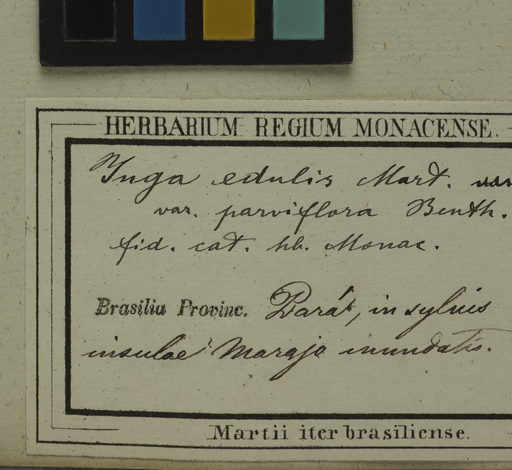 HERBARIUM REGIUM MONACENSE.
Inga edulis Mart. var
var. parviflora Benth.
fid. cat. hb. Monac.
Brasilia Provinc. Pará, in sylvis
insulae Marajo inundatis.
Martii iter brasiliense.